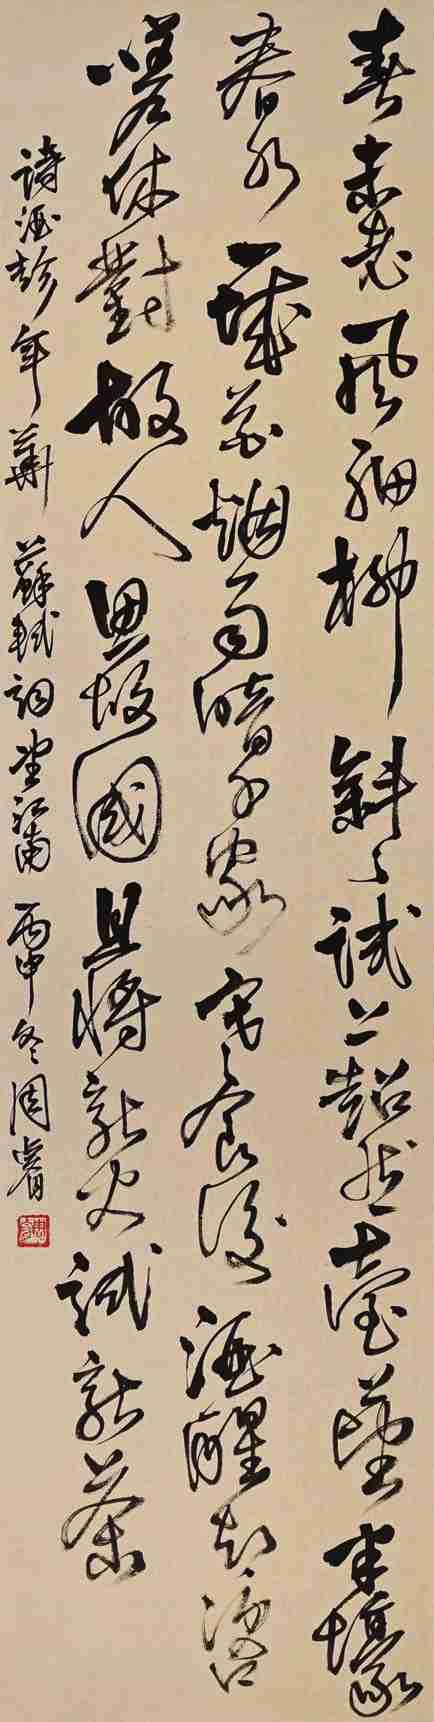 春未老風細柳斜〻試上超然臺望半壕
春水一城花烟雨暗千家寒食後酒醒却咨
嗟休對故人思故國且將新火試新茶
詩酒趁年華 蘇軾詞望江南 丙申冬周睿